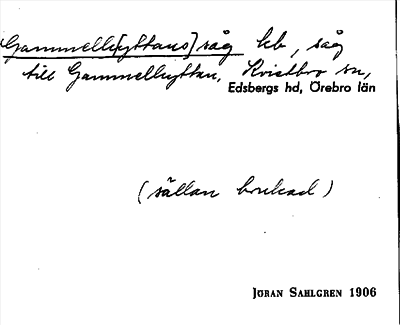 Gammelh[yttans]såg hb, såg
till Gammelhyttan, Kvistbro sn,
Edsbergs hd, Örebro län
(sällan brukad)
JÖRAN SAHLGREN 1906